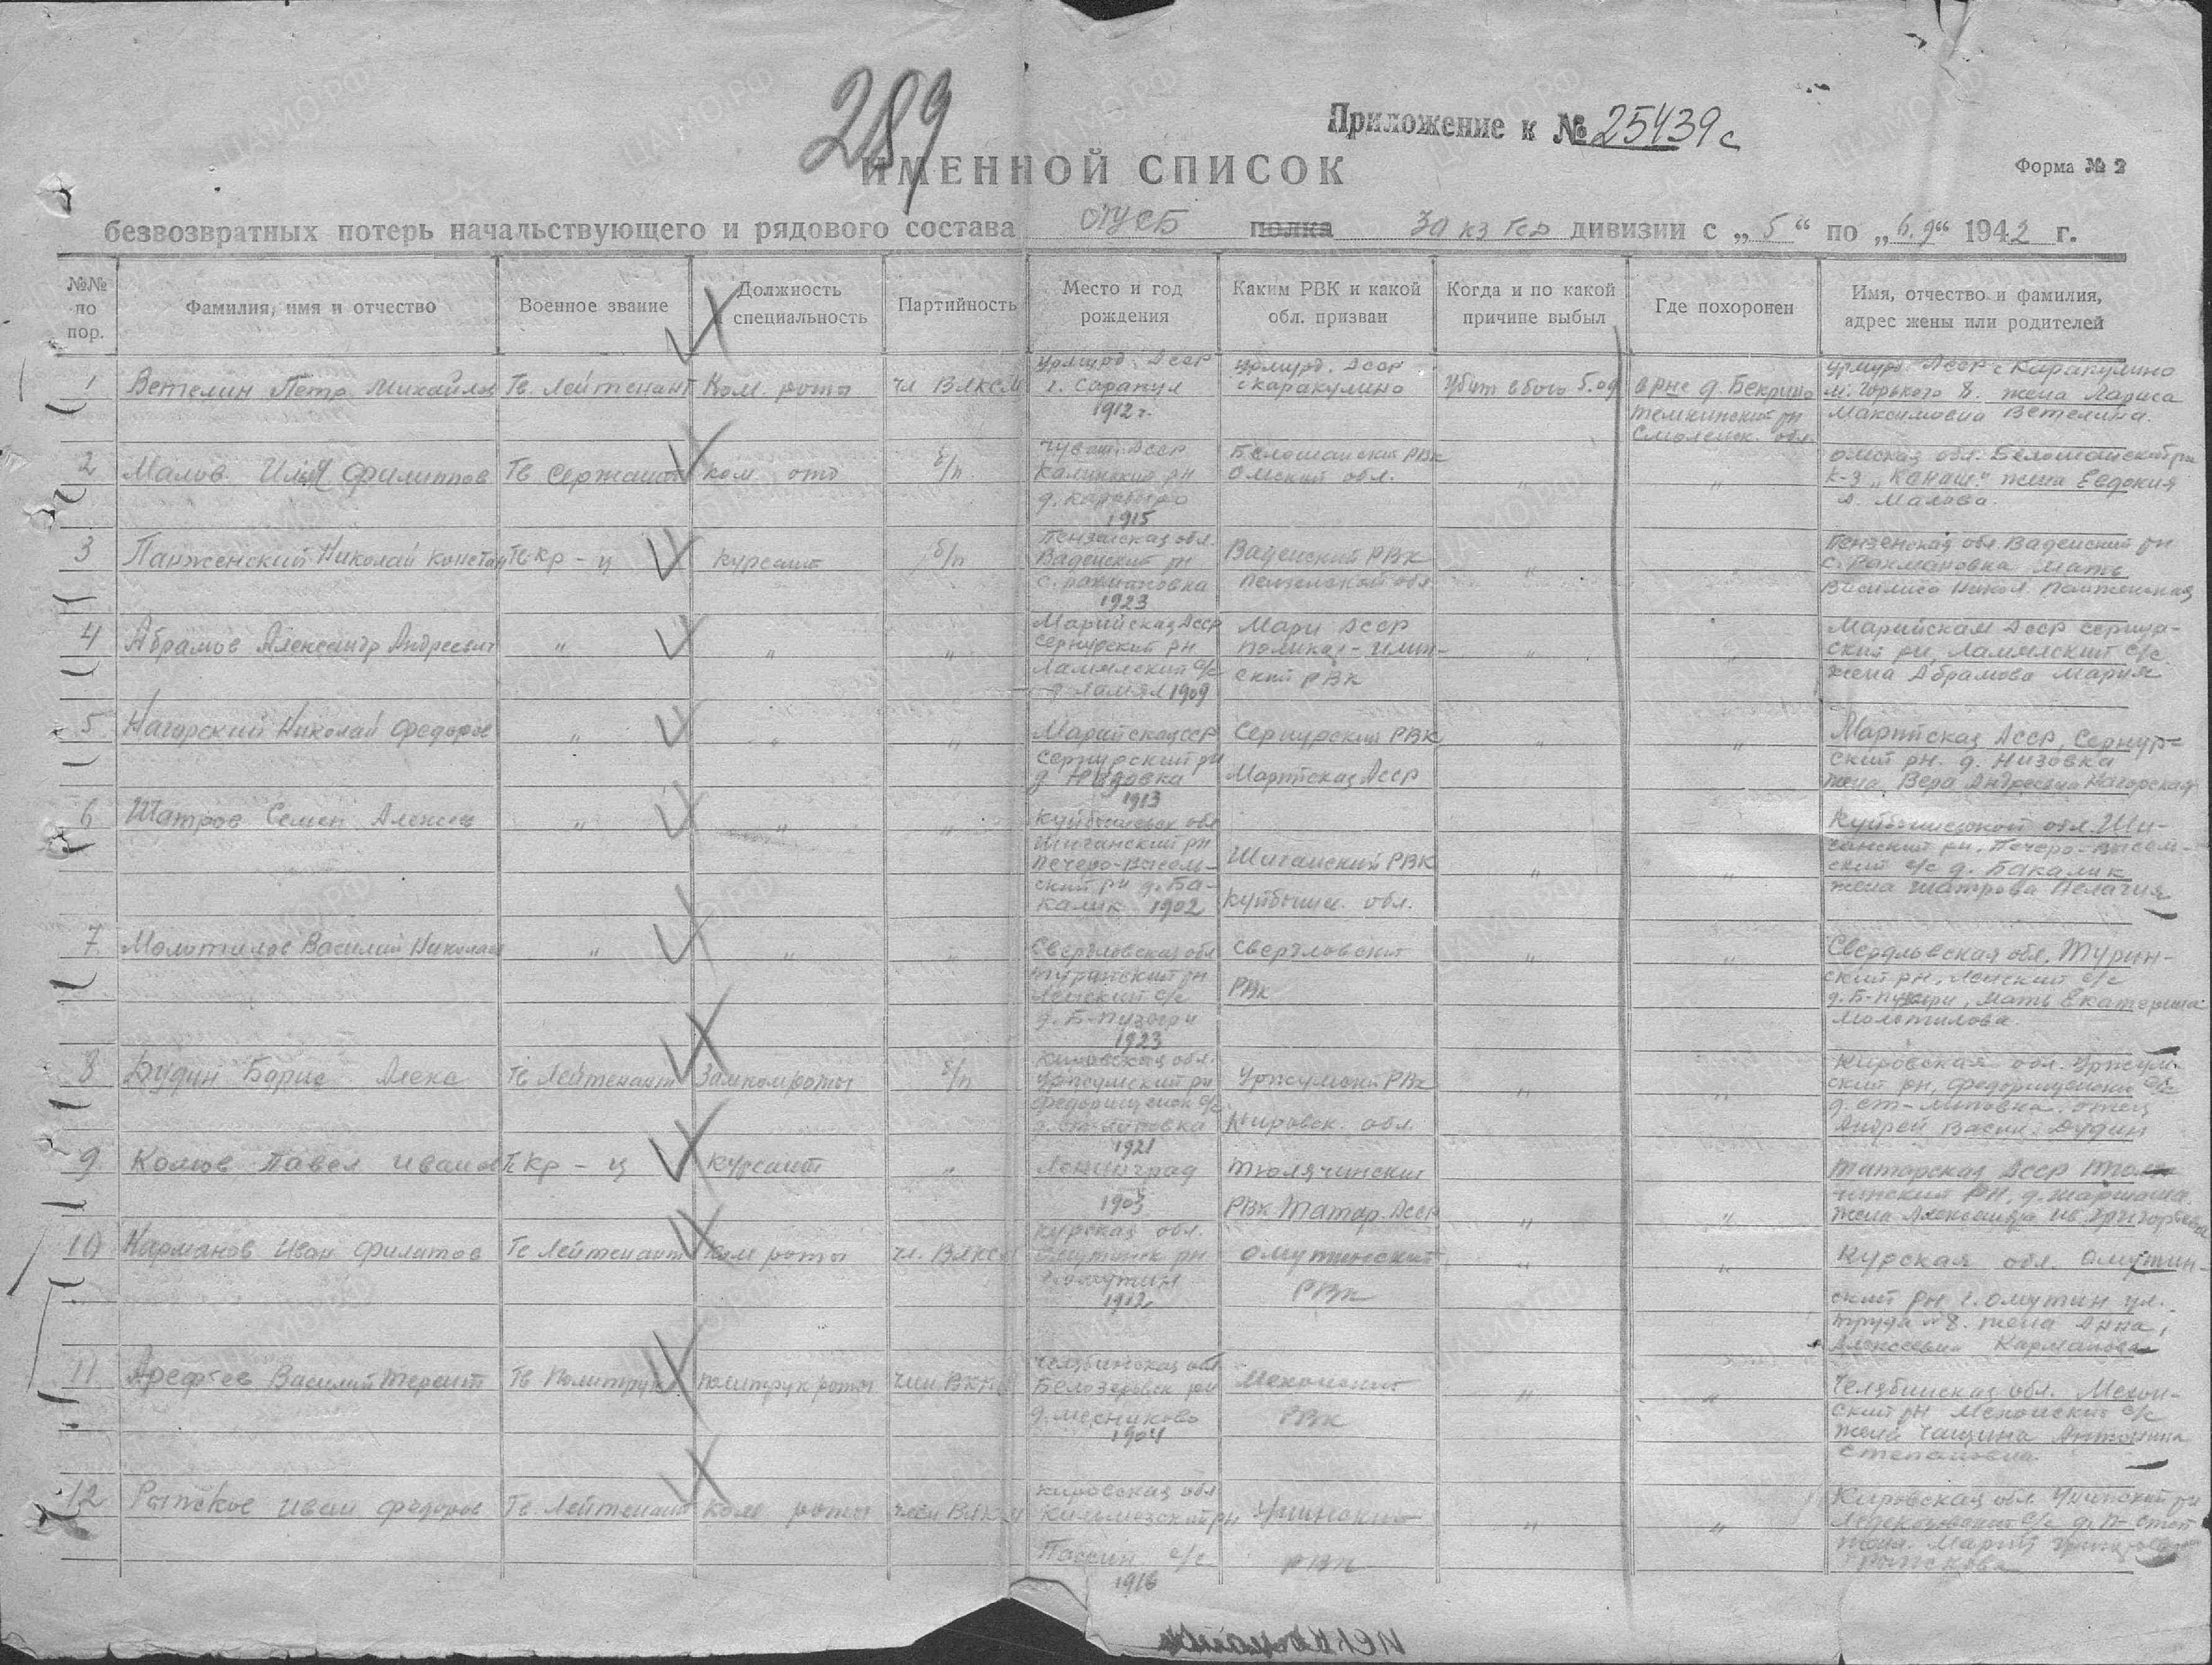 289
Приложение к № 25439с
ИМЕННОЙ СПИСОК
Форма № 2
безвозвратных потерь начальствующего и рядового состава ОУСБ полка дивизии с „5“ по „6.9“ 1942 г.
№№ по пор.
Фамилия, имя и отчество
Военное звание
Должность и специальность
Партийность
Место и год рождения
Каким РВК и какой обл. призван
Когда и по какой причине выбыл
Где похоронен
Имя, отчество и фамилия, адрес жены или родителей
1 Ветелин Петр Михайлов Гв. Лейтенант Ком. роты чл ВЛКСМ
Удмурд. Асср
г. Сарапул
1912 г.
Удмурд. Асср
с Каракулино
Убит в бою 5.09
в рне д. Бекрино
Темкинский рн
Смоленск. обл.
Удмурд Асср с Каракулино
М. Горького 8. жена Лариса
Максимовна Ветелина.
2 Малов Илья Филиппов Гв Сержант ком отд б/п
Чуваш. Асср
Калинский рн
1915
РВК
Омской обл.
"
"
Омская обл.
к-з „Канаш" жена Евдокия
Малова.
3 Панженский Николай Констан Гв кр-ц Курсант б/п
Пензенская обл.
Вадинский рн
с. Рахмановка
1923
Вадинский РВК
Пензенской обл
"
"
Пензенская обл. Вадинский рн
с. Рахмановка Мать
Василиса Никол. Панженская
4 Абрамов Александр Андреевич " " "
Марийская Асср
Сернурский рн
Ламялский с/с
д Ламял 1909
Мари Асср
ский РВК
"
"
Марийская Асср Сернур-
ский рн, Ламялский с/с
жена Абрамова Мария
5 Нагорский Николай Федоров " " "
Марийская сср
Сернурский рн
д Низовка
1913
Сернурский РВК
Марийская Асср
"
"
Марийская Асср, Сернур-
ский рн. д. Низовка
жена Вера Андреевна Нагорская
6 Шатров Семен Алексеев " " "
Куйбышевск обл
Шиганский рн
ский рн д. Ба-
калик 1902
Шиганский РВК
Куйбышев. обл.
"
"
Куйбышевской обл. Ши-
ганский рн,
ский с/с д. Бакалик
жена Шатрова Пелагия
7 Молотилов Василий Николаев " " "
Свердловская обл
Туринский рн
Ленский с/с
д. Б-Пузыри
1923
Свердловский
РВК
"
"
Свердловская обл, Турин-
ский рн, Ленский с/с
д. Б-Пузыри, мать Екатерина
Молотилова.
8 Дудин Борис Гв Лейтенант Замкомроты б/п
Кировская обл.
Уржумский рн
с/с
1921
Уржумский РВК
Кировск. обл.
"
"
Кировская обл. Уржум-
ский рн, с/с
отец
Андрей Васил. Дудин
9 Павел Иванов Гв Кр-ц Курсант "
Ленинград
1903
Тюлячинский
РВК Татар. Асср
"
"
Татарская Асср
чинский рн,
жена Александра Ив. Григорьева
10 Карманов Иван Филатов Гв Лейтенант Ком роты чл. ВЛКСМ
Курская обл.
Омутинск рн
с. Омутин
1912
Омутинский
РВК
"
"
Курская обл. Омутин-
ский рн с. Омутин ул.
Труда 8. жена Анна
Алексеевна Карманова
11 Арефьев Василий Терент Гв Политрук политрук роты член
Челябинская обл
Белозерск рн
1904
Мехонский
РВК
"
"
Челябинская обл. Мехон-
ский рн Мехонский с/с
жена Чащина Антонина
Степановна.
12 Иван Федоров Гв. Лейтенант Ком роты член
Кировская обл
Кильмезский рн
с/с
1916
Унинский
РВК
"
"
Кировская обл Унинский рн
с/с
жена. Мария